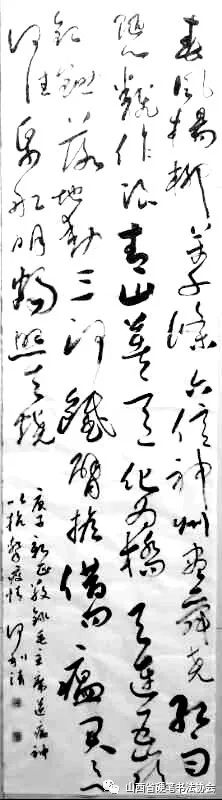 春风楊柳萬千條六億神州盡舜尧红雨
随心翻作浪青山着意化为橋天連五岭
银锄落地動三河鐵臂摇借问瘟君欲
何往纸船明烛照天烧
庚子新正敬録毛主席送瘟神
以抗擊疫情
山西省硬笔书法协会